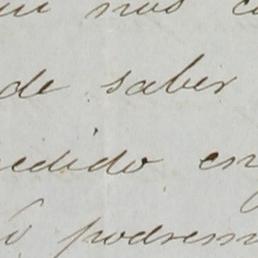 nos
de saber
edido en
podrem